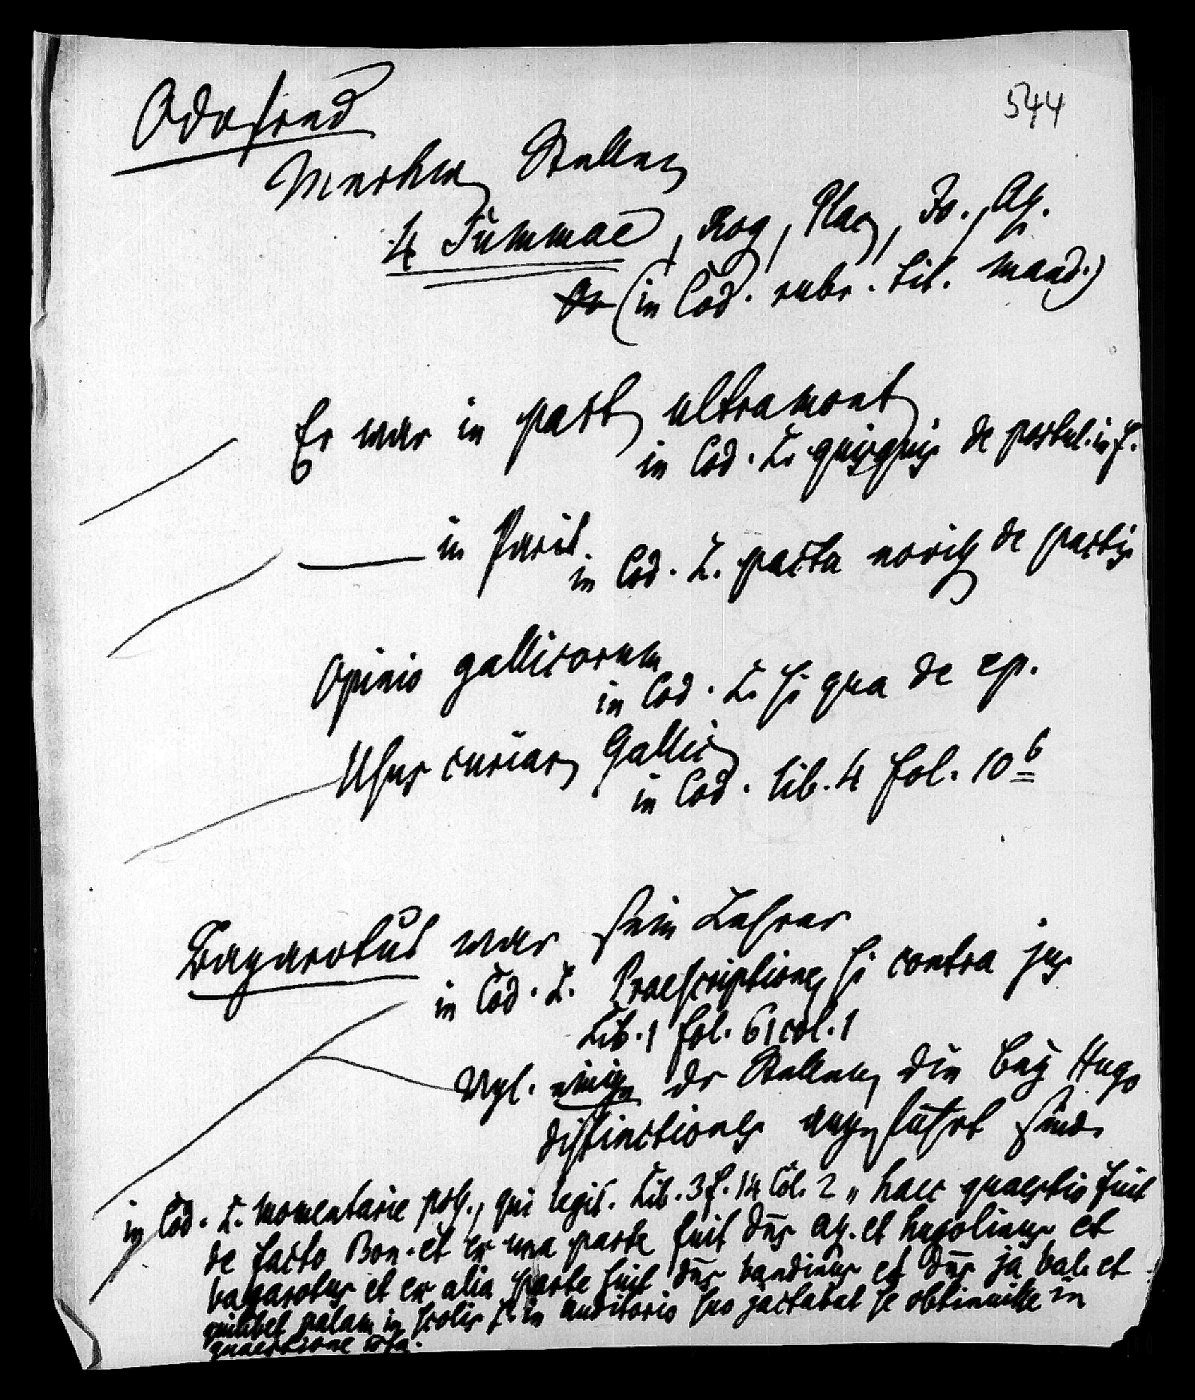 544
Odofred
Merkw Stellen
4 Summae, Rog, Plac, Jo., Az.
(in Cod. rubr. tit. mand.)
Er war in part ultramont
in Cod. L. quisquis de postul. in f.
in Paris.
in Cod. L. pacta novis de pactis
Opinio gallicorum
in Cod. L. si qua de ep.
Usus curiar Gallic
in Cod. lib. 4 fol. 10 b
Bagarotus war sein Lehrer
in Cod. L. Praescriptione si contra jus
Lib. 1 fol. 61 col. 1
Vgl. einige dr Stellen die bey Hugo
distinctiones angeführt sind.
in Cod. L. momentarie poss., qui legit. Lib. 3 f. 14 Col. 2 „haec quaestio fuit
de facto Bon. et ex una parte fuit dns az. et hugolinus et
bagarotus et ex alia parte fuit dns bandinus et dns ja bal. et
quilibet palam in scolis s. in auditorio suo jactabat se obtinuisse in
quaestione ista.